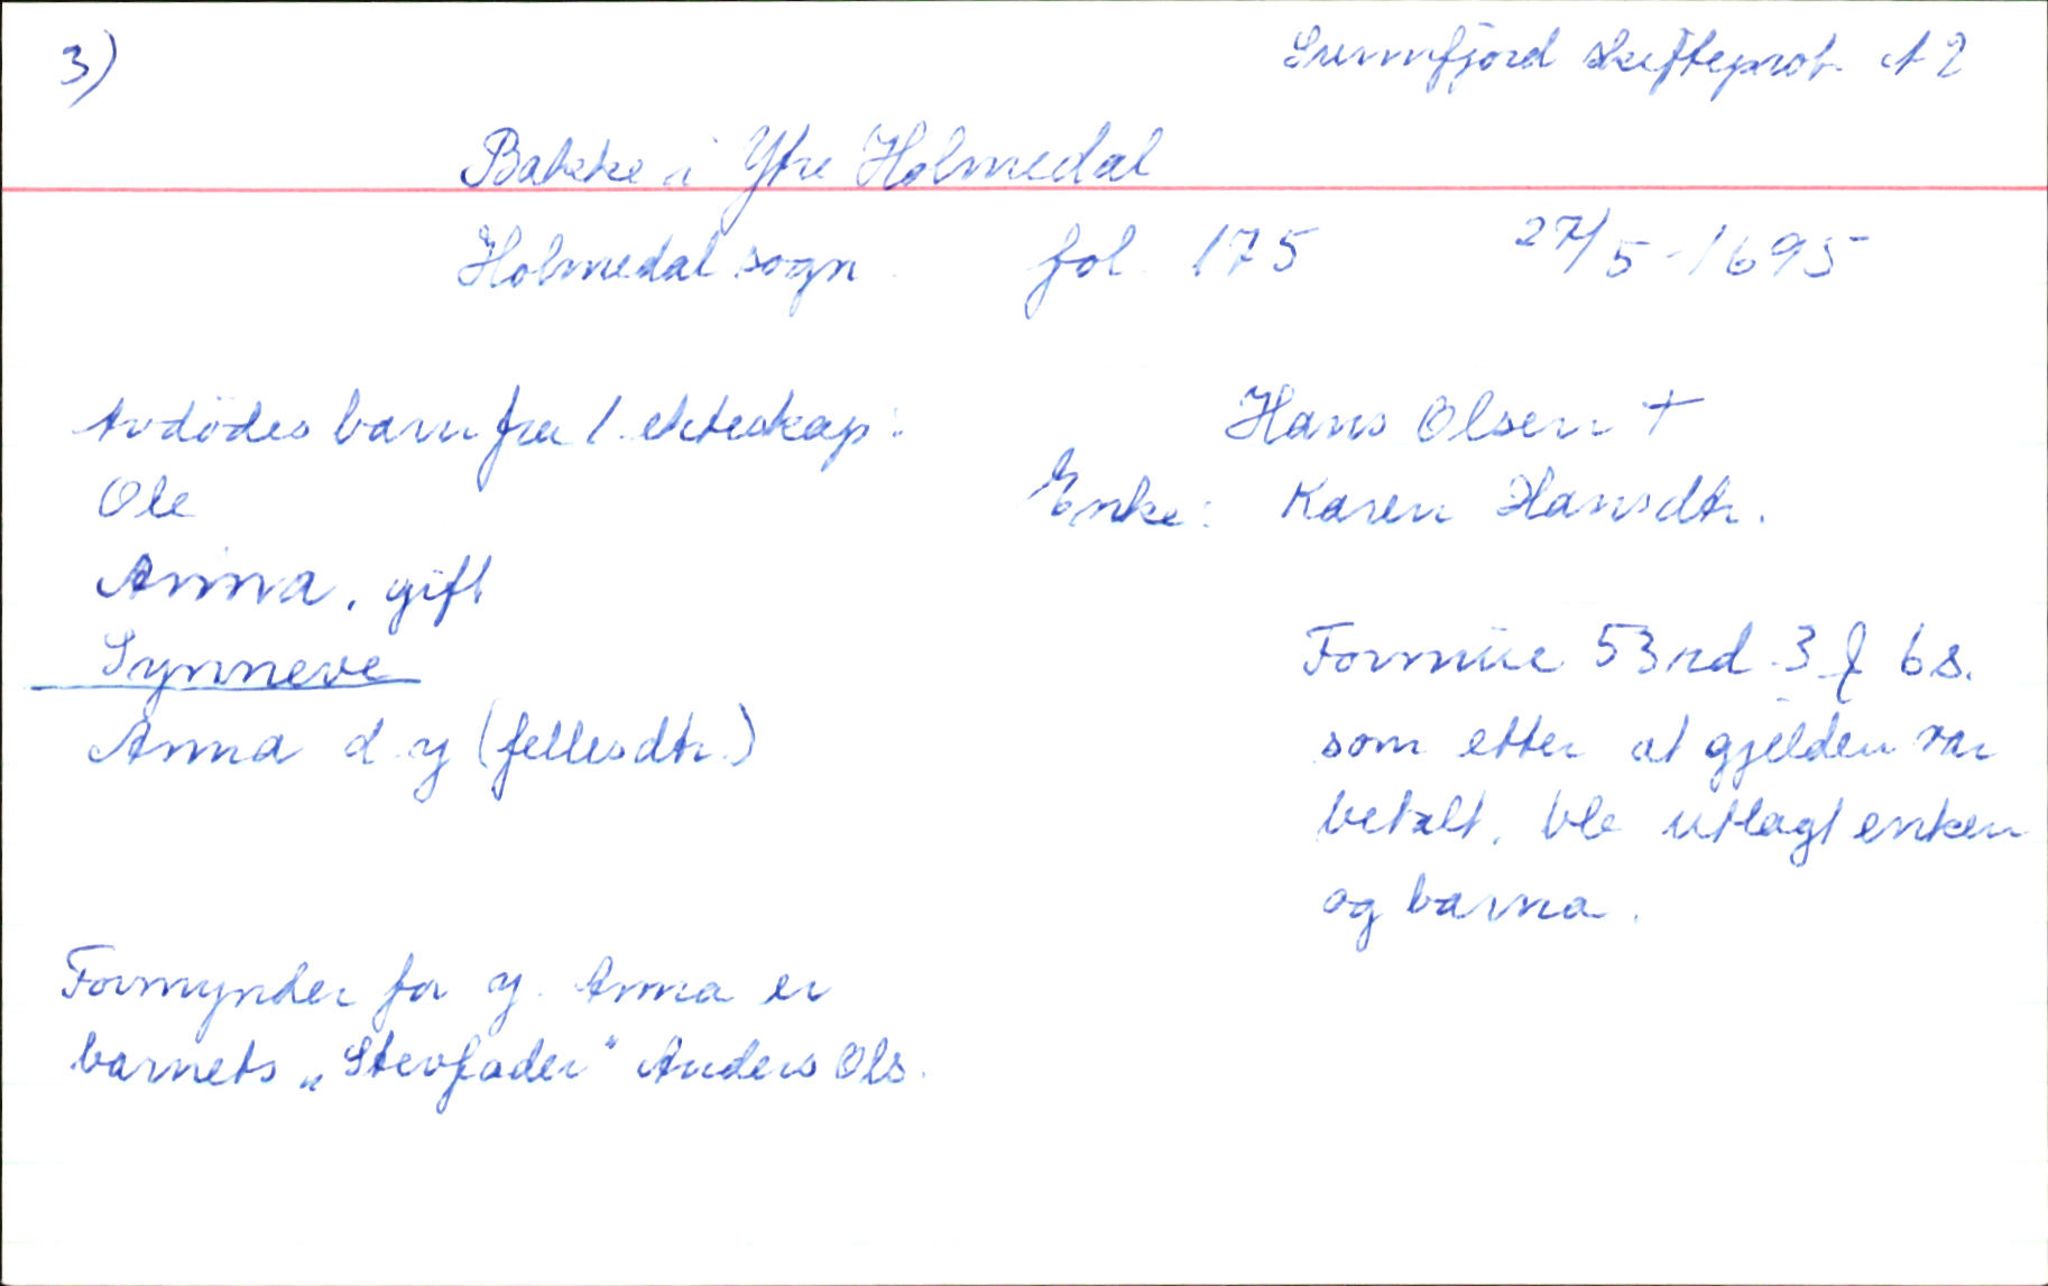 3)
Sunnfjord skifteprot A 2
Bakke i Ytre Holmedal
Holmedal sogn. fol. 175 27/5-1695
Avdödes barn fra 1. ekteskap:
Ole
Anna, gift
Synneve
Anna d. y (fellesdtr.)
Formynder for y. Anna er
barnets „Stevfader" Anders Ols.
Hans Olsen +
Enke: Karen Hansdtr.
Formüe 53 rd. 3 ƒ 6 s.
som etter at gjelden var
betalt, ble utlagt enken
og barna.